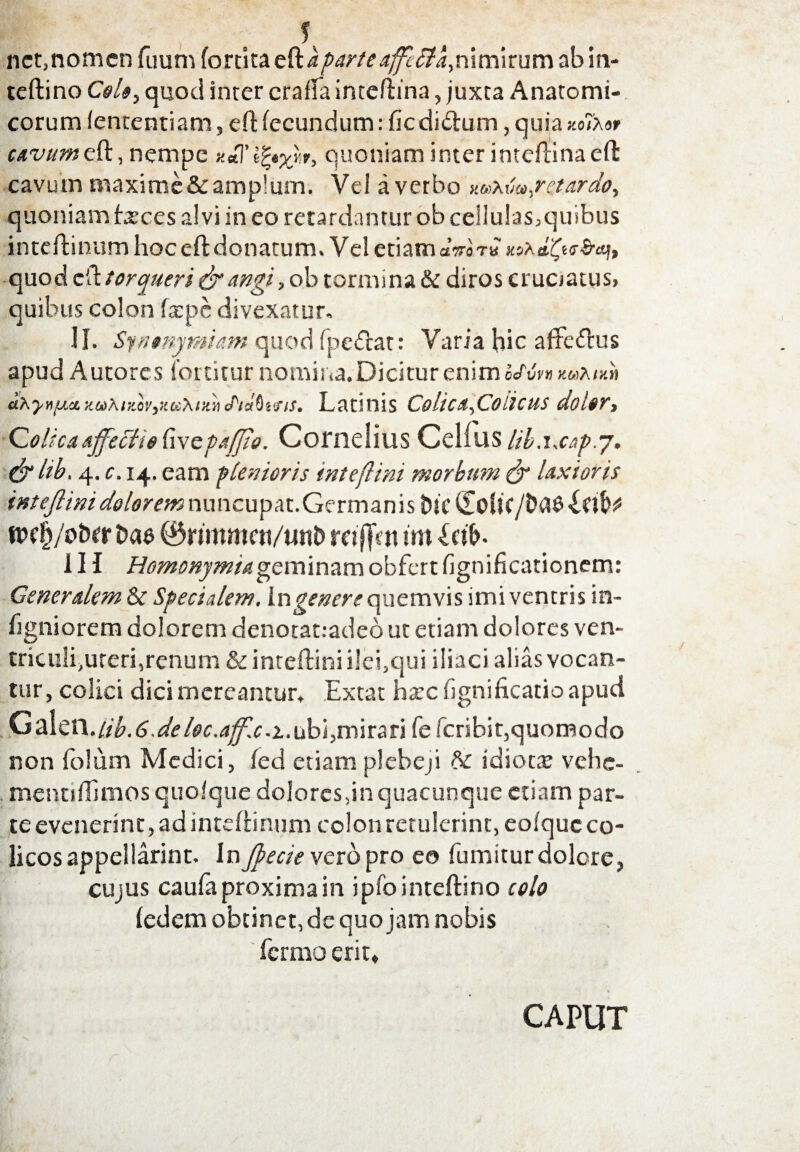 5
net,nomen ſuum ſortita eſt à parte affectâ,nimirum ab in-
teſtino Colo, quod inter craſſa inteſtina, juxta Anatomi-
corum ſententiam, eſt ſecundum: ſic dictum, quia κοῖλον
cavum eſt, nempe κατ' ἐξοχὴν, quoniam inter inteſtina eſt
cavum maximè & amplum. Vel à verbo κωλύω, retardo,
quoniam fæces alvi in eo retardantur ob cellulas,quibus
inteſtinum hoc eſt donatum. Vel etiam ἀπὸ τῦ κολάζεσθαι,
quod eſt torqueri & angi, ob tormina & diros cruciatus,
quibus colon ſæpè divexatur.
II. Synonymiam quod ſpectat: Varia hic affectus
apud Autores ſortitur nomina. Dicitur enim ὀδύνη κωλικὴ
ἄλγημα κωλικὸν,κωλικὴ διάθεσις. Latinis Colica,Colicus dolor,
Colica affectio ſive paſſio. Cornelius Celſus lib.1.cap.7.
& lib. 4. c. 14. eam plenioris inteſtini morbum & laxioris
inteſtini dolorem nuncupat.Germanis die Colic/das Leib-
weh/oder das Grimmen/und reiſſen im Leib.
III Homonymia geminam obfert ſignificationem:
Generalem & Specialem. In genere quemvis imi ventris in-
ſigniorem dolorem denotat:adeò ut etiam dolores ven-
triculi,uteri,renum & inteſtini ilei,qui iliaci aliàs vocan-
tur, colici dici mereantur. Extat hæc ſignificatio apud
Galen.lib.6.de loc.aff.c.2.ubi,mirari ſe ſcribit,quomodo
non ſolùm Medici, ſed etiam plebeji & idiotæ vehe-
mentiſſimos quoſque dolores,in quacunque etiam par-
te evenerint, ad inteſtinum colon retulerint, eoſque co-
licos appellârint. In ſpecie verò pro eo ſumitur dolore,
cujus cauſa proxima in ipſo inteſtino colo
ſedem obtinet, de quo jam nobis
ſermo erit.
CAPUT